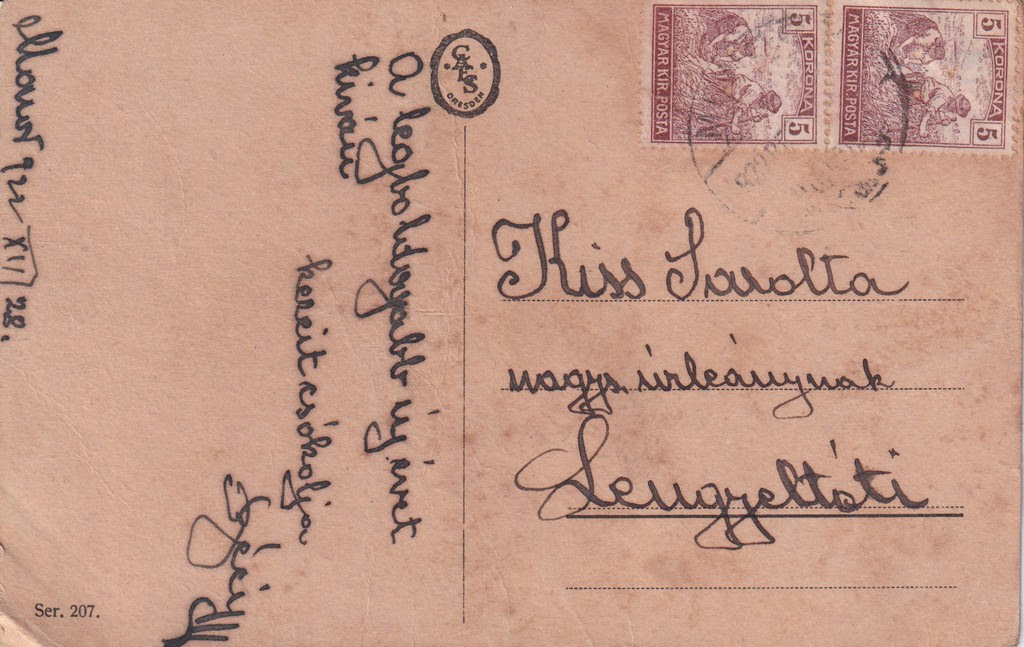 922 XII 28.
A legboldogabb új évet
kíván
kezeit csókolja
CAFS
DRESDEN
5 KORONA 5
MAGYAR KIR. POSTA
5 KORONA 5
MAGYAR KIR. POSTA
Kiss Sarolta
nagys. úrleánynak
Lengyeltóti
Ser. 207.